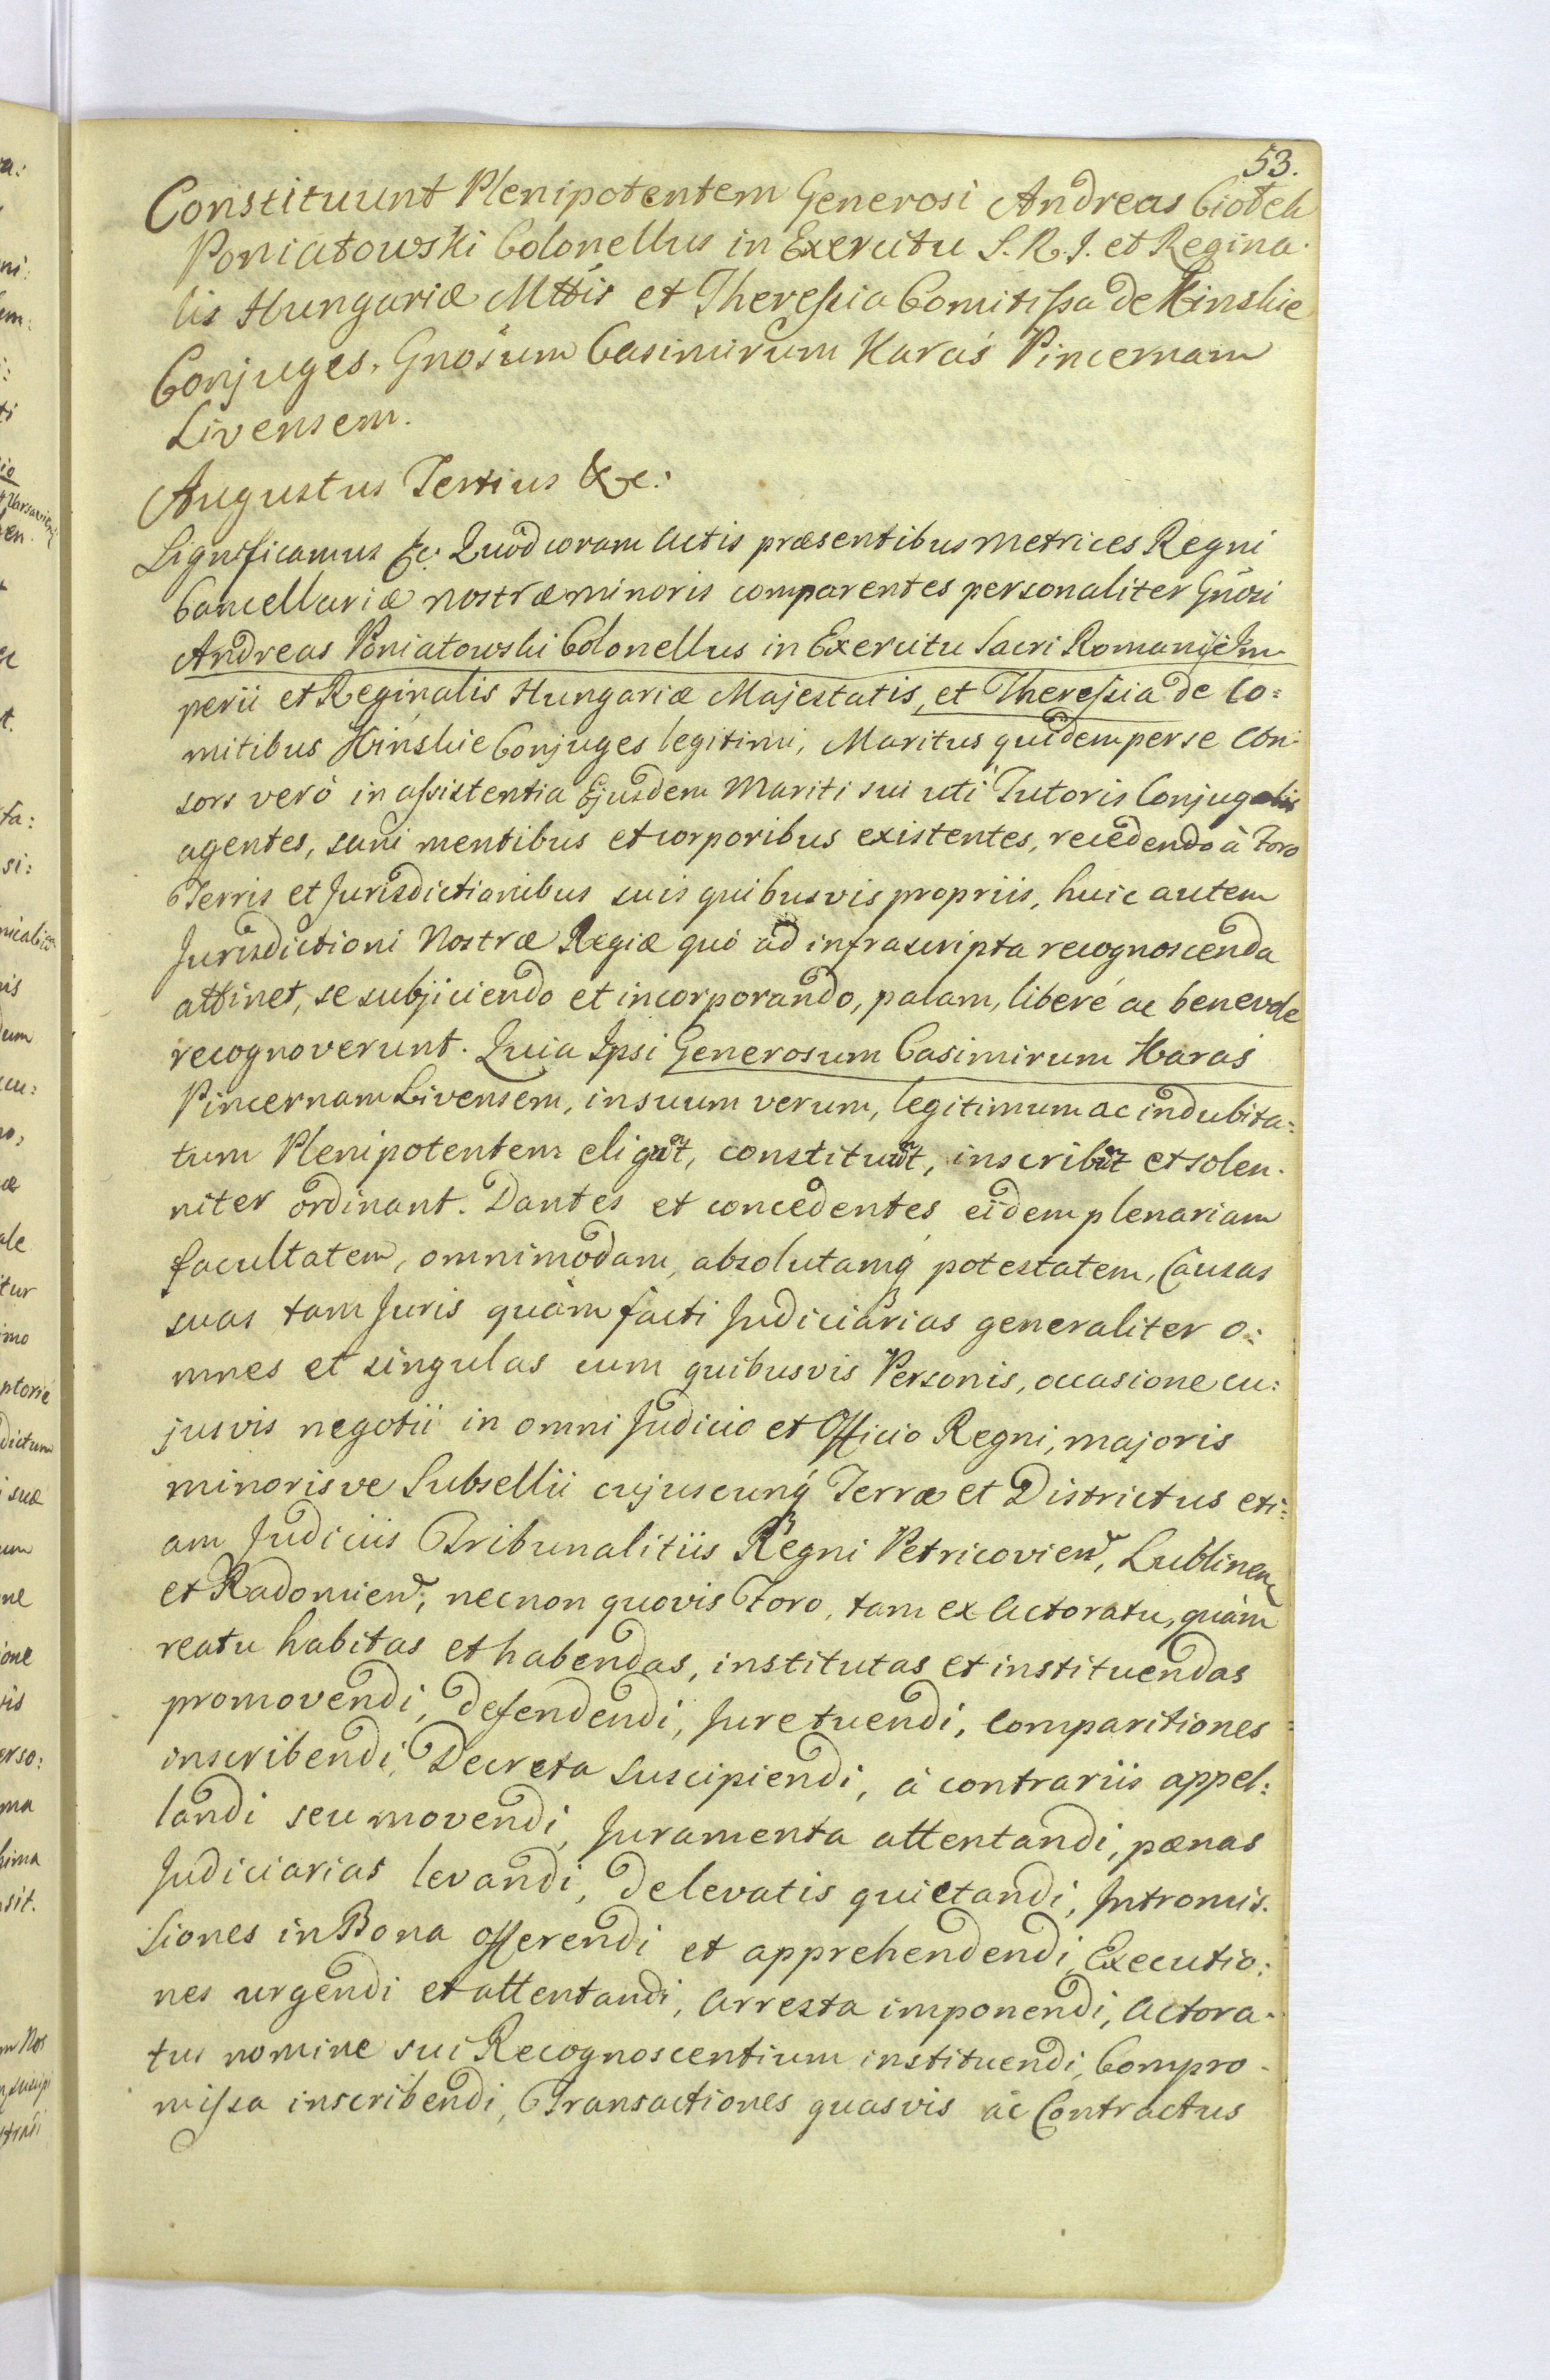 53.
Constituunt Plenipotentem Generosi Andreas Ciołek
Poniatowski Colonellus in Exercitu S. R. J. et Regina-
lis Hungariæ Mttis et Theressia Comitissa de Kinskie
Conjuges. Gnosum Casimirum Karaś Pincernam
Livensem.
Augustus Tertius &c:
Significamus &c. Quod coram Actis præsentibus Metrices Regni
Cancellariæ nostræ minoris comparentes personaliter Gnosi
Andreas Poniatowski Colonellus in Exercitu Sacri Romani Im-
perii et Reginalis Hungariæ Majestatis, et Theressia de Co=
mitibus Kinskie Conjuges legitimi, Maritus quidem per se Con-
sors verò in assistentia Ejusdem Mariti sui uti Tutoris Conjugalis
agentes, sani mentibus et corporibus existentes, recedendo à Foro
Terris et Jurisdictionibus suis quibusvis propriis, huic autem
Jurisdictioni Nostræ Regiæ quò ad infrascripta recognoscenda
attinet, se subjiciendo et incorporando, palam, liberè ac benevole
recognoverunt. Quia Ipsi Generosum Casimirum Karaś
Pincernam Livensem, in suum verum, legitimum ac indubita=
tum Plenipotentem eligūt, constituūt, inscribūt et solen-
niter ordinant. Dantes et concedentes eidem plenariam
facultatem, omnimodam, absolutamq́ potestatem, Causas
suas tam Juris quàm facti Judiciarias generaliter o=
mnes et singulas cum quibusvis Personis, occasione cu:
jusvis negotii in omni Judicio et Officio Regni, majoris
minorisve Subsellii cujuscunq́ Terræ et Districtus eti=
am Judiciis Tribunalitiis Regni Petricovien, Lublinen
et Radomien, necnon quovis Foro, tam ex Actoratu, quàm
reatu habitas et habendas, institutas et instituendas
promovendi, defendendi, Jure tuendi, comparitiones
inscribendi, Decreta suscipiendi, à contrariis appel:
landi seu movendi, Juramenta attentandi, pænas
Judiciarias levandi, de levatis quietandi, Intromis-
siones in Bona offerendi et apprehendendi, Executio:
nes urgendi et attentandi, Arresta imponendi, Actora-
tus nomine sui Recognoscentium instituendi, Compro-
missa inscribendi, Transactiones quasvis ac Contractus